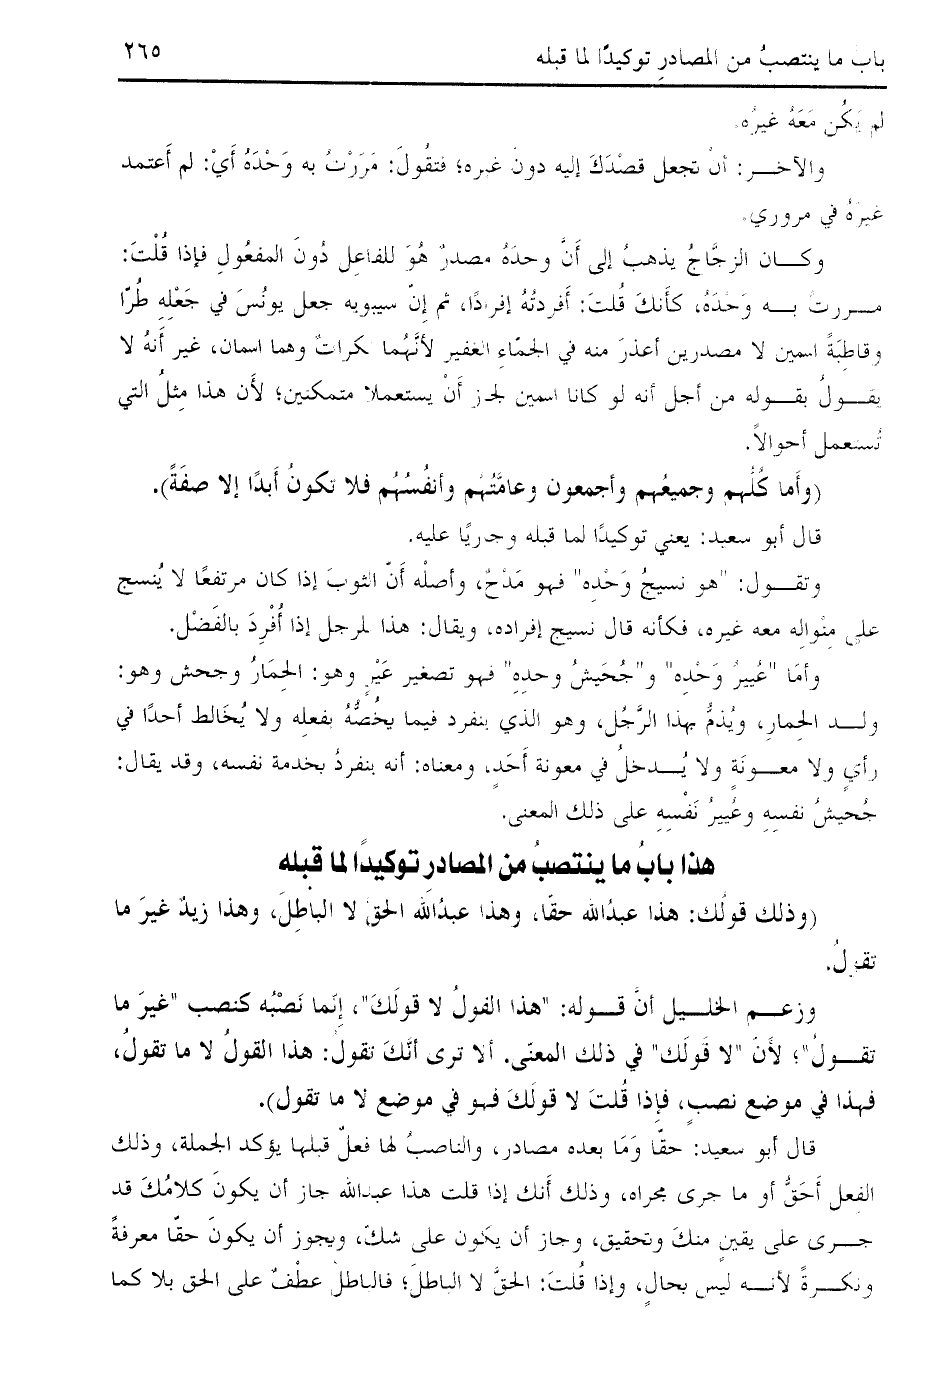 باب ما ينتصبُ من المصادرِ توكيدًا لما قبله ٢٦٥
لم يَكُن مَعَهُ غيرُه.
والآخــر: أنْ تجعل قصْدَكَ إليه دونَ غيره؛ فتقُولَ: مَرَرْتُ به وَحْدَهُ أيْ: لم أَعتمد
غيرَهُ في مروري.
وكــان الزجَّاجُ يذهبُ إلى أنَّ وحدَهُ مصدرٌ هُوَ للفاعِلِ دُونَ المفعُولِ فإذا قُلْتَ:
مــررت بــه وَحْدَهُ، كأنكَ قُلتَ: أفردتُهُ إفرادًا، ثم إنّ سيبويه جعل يونُسَ في جَعْلِهِ طُرّا
وقاطِبَةً اسمين لا مصدرين أعذرَ منه في الجمّاء الغفير لأنَّهُما نكراتٌ وهما اسمان، غير أنهُ لا
يقــولُ بقــوله من أجل أنه لو كانا اسمين لجاز أنْ يستعملا متمكنين؛ لأن هذا مِثلُ التي
تُستعمل أحوالاً.
(وأما كُلُّهم وجميعُهم وأجمعون وعامَّتُهم وأنفُسُهُم فلا تكونُ أبدًا إلا صفَةً).
قال أبو سعيد: يعني توكيدًا لما قبله وجريًا عليه.
وتقــول: "هو نسيجُ وَحْدِه" فهو مَدْحٌ، وأصلُه أنّ الثوبَ إذا كان مرتفعًا لا يُنسج
على مِنْواله معه غيره، فكأنه قال نسيج إفراده، ويقال: هذا للرجل إذا أُفْرِدَ بالفَضْل.
وأمّا "عُييرُ وَحْدِه" و"جُحَيشُ وحدِه" فهو تصغير عَيْرٍ وهو: الحِمَارُ وجحش وهو:
ولــد الحِمار، ويُذمُّ بهذا الرَّجُل، وهو الذي ينفرد فيما يخُصُّهُ بفعله ولا يُخالط أحدًا في
رأيٍ ولا معــونَةٍ ولا يُــدخلُ في معونة أحَدٍ، ومعناه: أنه ينفردُ بخدمة نفسه، وقد يقال:
جُحيشُ نفسِهِ وعُييرُ نَفْسِهِ على ذلك المعنى.
هذا بابُ ما ينتصبُ من المصادر توكيدًا لما قبله
(وذلك قولُك: هذا عبدُالله حقًا، وهذا عبدُالله الحقَّ لا الباطلَ، وهذا زيدٌ غيرَ ما
تقولُ.
وزعــم الخلــيل أنَّ قــوله: "هذا القولُ لا قولَكَ"، إنّما نَصْبُه كنصب "غيرَ ما
تقــولُ"؛ لأنّ "لا قَولَك" في ذلك المعنَى. ألا ترى أنّكَ تقولُ: هذا القولُ لا ما تقولُ،
فهذا في موضع نصبٍ، فإذا قُلتَ لا قولَكَ فهو في موضع لا ما تقول).
قال أبو سعيد: حقًّا وَمَا بعده مصادر، والناصبُ لها فعلٌ قبلها يؤكد الجملة، وذلك
الفعل أَحَقُّ أو ما جرى مجراه، وذلك أنك إذا قلت هذا عبدالله جاز أن يكونَ كلامُكَ قد
جــرى على يقينٍ منكَ وتحقيق، وجاز أن يكون على شكّ، ويجوز أن يكونَ حقًّا معرفةً
ونكــرةً لأنــه ليس بحالٍ، وإذا قُلتَ: الحقَّ لا الباطلَ؛ فالباطلَ عطفٌ على الحق بلا كما